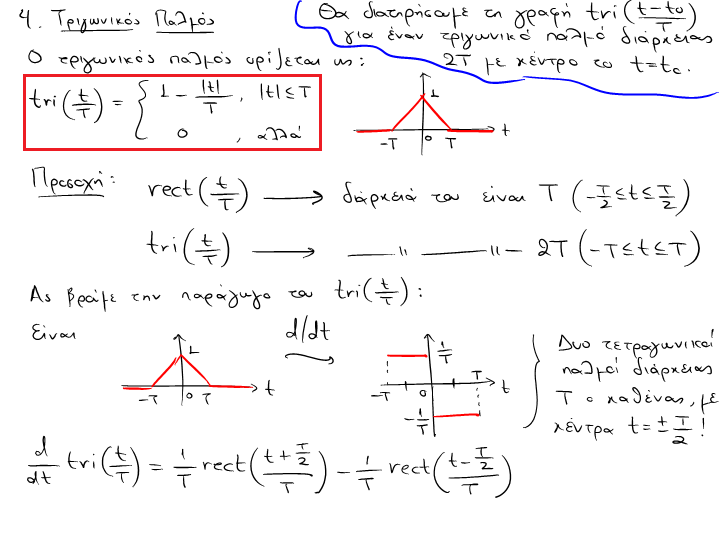 4. Τριγωνικός Παλμός
Θα διατηρήσουμε τη γραφή tri((t-t₀)/T)
για έναν τριγωνικό παλμό διάρκειας
2T με κέντρο το t=t₀.
Ο τριγωνικός παλμός ορίζεται ως:
tri(t/T) = { 1 - |t|/T, |t| ≤ T
0 , αλλά
1
-T 0 T t
Προσοχή: rect(t/T) ⟶ διάρκειά του είναι T (-T/2 ≤ t ≤ T/2)
tri(t/T) ⟶ —— " —— "— 2T (-T ≤ t ≤ T)
Ας βρούμε την παράγωγο του tri(t/T):
Είναι
1
-T 0 T t
d/dt
1/T
-T 0 T t
-1/T
Δυο τετραγωνικοί
παλμοί διάρκειας
T ο καθένας, με
κέντρα t = ± T/2 !
d/dt tri(t/T) = 1/T rect((t + T/2)/T) - 1/T rect((t - T/2)/T)